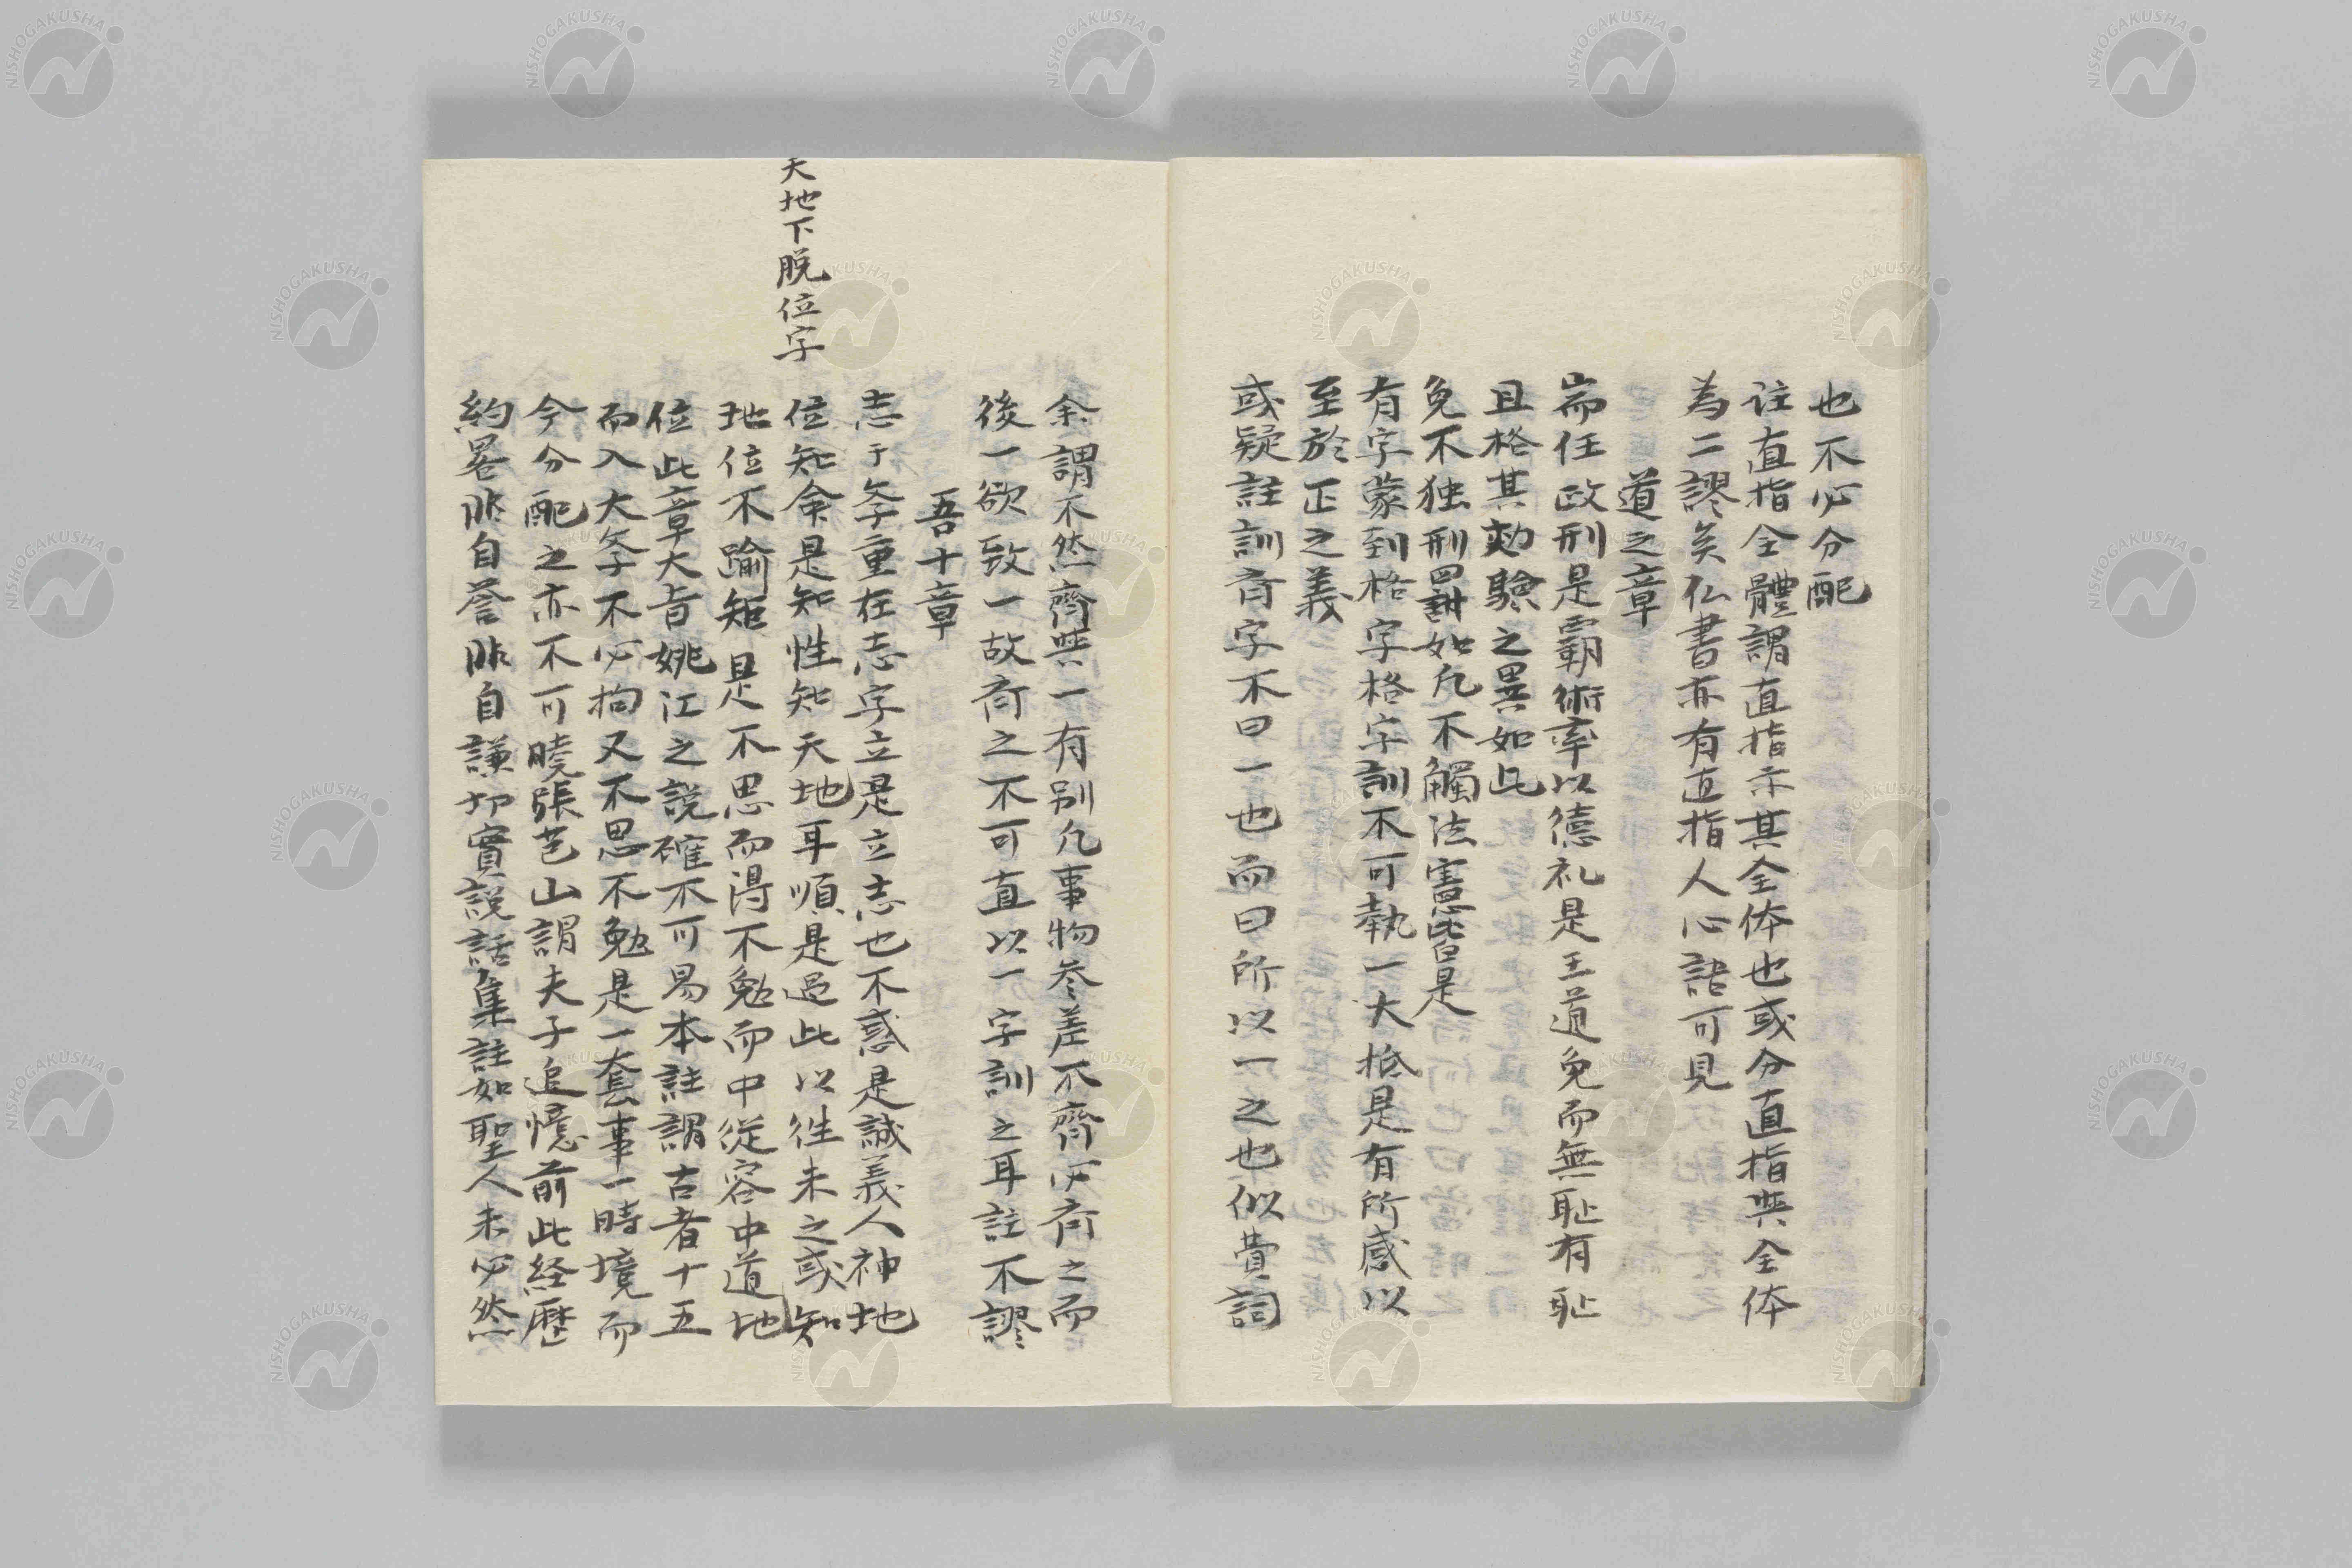 也不必分配
註直指全體謂直指示其全体也或分直指與全体
為二謬矣仏書亦有直指人心語可見
道之章
耑任政刑是霸術率以德礼是王道免而無恥有恥
且格其効驗之異如此
免不独刑罰如凡不觸法憲皆是
有字蒙到格字格字訓不可執一大抵是有所感以
至於正之義
或疑註訓斉字不曰一也而曰所以一之也似費詞
余謂不然齊與一有別凡事物参差不齊以斉之而
後一欲致一故斉之不可直以一字訓之耳註不謬
吾十章
志于学重在志字立是立志也不惑是誠義人神地
天地下脱位字
位知命是知性知天地耳順是過此以往未之或知
地位不踰矩是不思而得不勉而中従容中道地
位此章大旨姚江之説確不可易本註謂古者十五
而入大学不必拘又不思不勉是一套事一時境而
今分配之亦不可曉張芑山謂夫子追憶前此経歴
約畧非自誉非自謙切實説話集註如聖人未必然